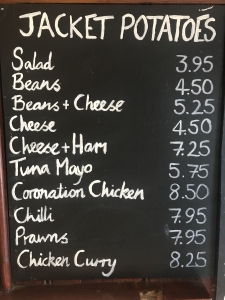 JACKET POTATOES
Salad 3.95
Beans 4.50
Beans + Cheese 5.25
Cheese 4.50
Cheese + Ham 7.25
Tuna Mayo 5.75
Coronation Chicken 8.50
Chilli 7.95
Prawns 7.95
Chicken Curry 8.25